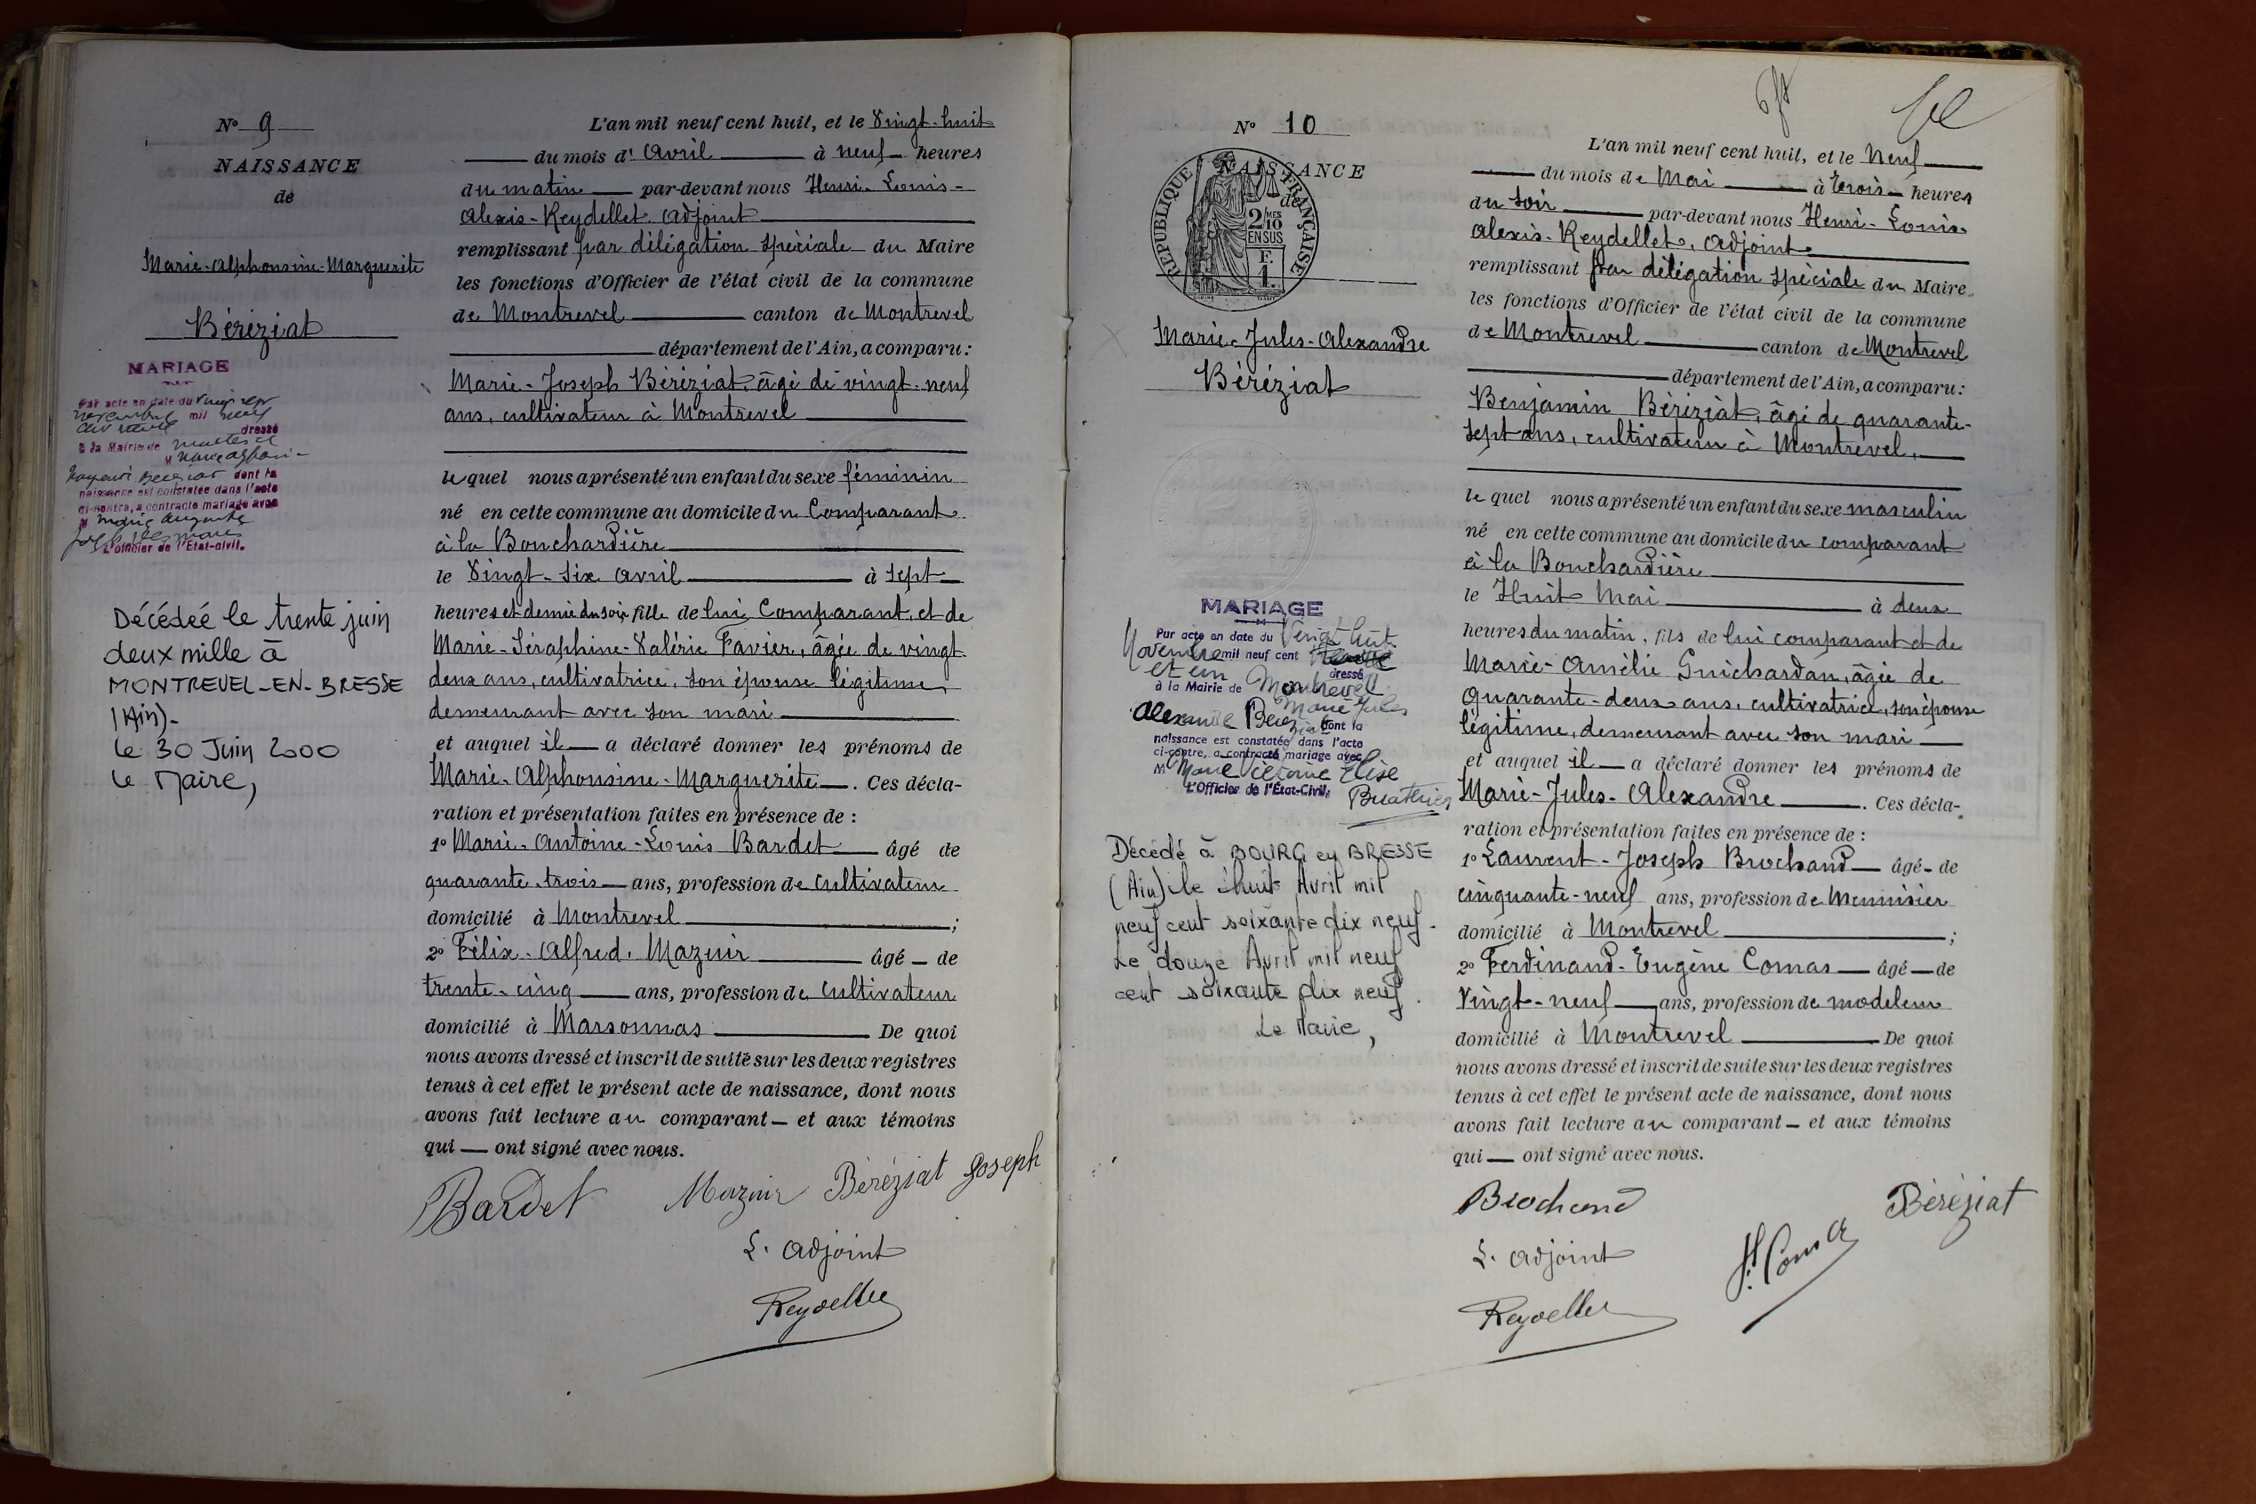 N° 9
NAISSANCE
de
Marie-Alphonsine-Marguerite
Béréziat
MARIAGE
Par acte en date du vingt sept
novembre mil neuf
dressé
à la Mairie de
dont la
naissance est constatée dans l'acte
ci-contre, a contracté mariage avec
M Marie Auguste
L'officier de l'Etat-civil.
Décédée le trente juin
deux mille à
MONTREVEL-EN-BRESSE
(Ain)-
le 30 Juin 2000
Le Maire,
L'an mil neuf cent huit, et le Vingt-huit
du mois d' Avril à neuf heures
du matin par-devant nous Henri-Louis-
Alexis-Reydellet, Adjoint
remplissant par délégation spéciale du Maire
les fonctions d'Officier de l'état civil de la commune
de Montrevel canton de Montrevel
département de l'Ain, a comparu:
Marie-Joseph Béréziat, âgé de vingt-neuf
ans, cultivateur à Montrevel
lequel nous a présenté un enfant du sexe féminin
né en cette commune au domicile du Comparant
à la Bouchardière
le Vingt-six avril à sept
heures et demie du soir, fille de lui Comparant, et de
Marie-Séraphine-Valérie Favier, âgée de vingt
deux ans, cultivatrice, son épouse légitime,
demeurant avec son mari
et auquel il a déclaré donner les prénoms de
Marie-Alphonsine-Marguerite. Ces décla-
ration et présentation faites en présence de :
1° Marie-Antoine-Louis Bardet âgé de
quarante-trois ans, profession de cultivateur
domicilié à Montrevel ;
2° Félix-Alfred Mazuir âgé de
trente-cinq ans, profession de cultivateur
domicilié à Marsonnas De quoi
nous avons dressé et inscrit de suite sur les deux registres
tenus à cet effet le présent acte de naissance, dont nous
avons fait lecture au comparant et aux témoins
qui ont signé avec nous.
Bardet Mazuir Béréziat Joseph
L. Adjoint
Reydellet
N° 10
NAISSANCE
de
RÉPUBLIQUE FRANÇAISE
2/10 MES
EN SUS
F.
1.
Marie-Jules-Alexandre
Béréziat
MARIAGE
Par acte en date du Vingt huit
Novembre mil neuf cent trente
et un dressé
à la Mairie de Montrevel
Marie Jules
Alexandre Béréziat dont la
naissance est constatée dans l'acte
ci-contre, a contracté mariage avec
M Marie Victorine Elise
L'Officier de l'Etat-Civil,
Décédé à BOURG en BRESSE
(Ain) le huit Avril mil
neuf cent soixante dix neuf.
Le douze Avril mil neuf
cent soixante dix neuf.
Le Maire,
L'an mil neuf cent huit, et le Neuf
du mois de Mai à trois heures
du soir par-devant nous Henri-Louis
Alexis-Reydellet, Adjoint
remplissant par délégation spéciale du Maire
les fonctions d'Officier de l'état civil de la commune
de Montrevel canton de Montrevel
département de l'Ain, a comparu:
Benjamin Béréziat, âgé de quarante-
sept ans, cultivateur à Montrevel,
lequel nous a présenté un enfant du sexe masculin
né en cette commune au domicile du comparant
à la Bouchardière
le Huit Mai à deux
heures du matin, fils de lui comparant et de
Marie-Amélie Guichardan, âgée de
quarante-deux ans, cultivatrice, son épouse
légitime, demeurant avec son mari
et auquel il a déclaré donner les prénoms de
Marie-Jules-Alexandre. Ces décla-
ration et présentation faites en présence de :
1° Laurent-Joseph Brochand âgé de
cinquante-neuf ans, profession de Menuisier
domicilié à Montrevel ;
2° Ferdinand-Eugène Comas âgé de
Vingt-neuf ans, profession de modeleur
domicilié à Montrevel De quoi
nous avons dressé et inscrit de suite sur les deux registres
tenus à cet effet le présent acte de naissance, dont nous
avons fait lecture au comparant et aux témoins
qui ont signé avec nous.
Brochand Béréziat
L. Adjoint
Reydellet